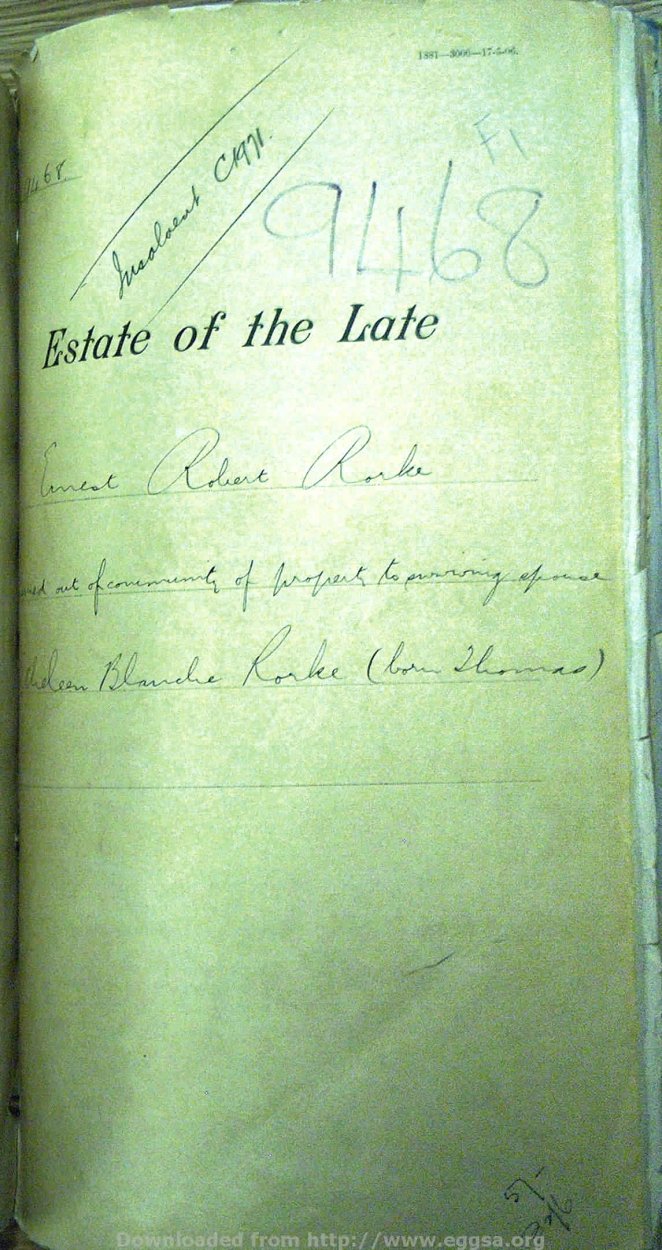 1881—3000—17-5-06.
F1
9468
Insolvent C1971.
9468
Estate of the Late
Ernest Robert Rorke
out of community of property to surviving spouse
Blanche Rorke (born Thomas)
5/-
Downloaded from http://www.eggsa.org